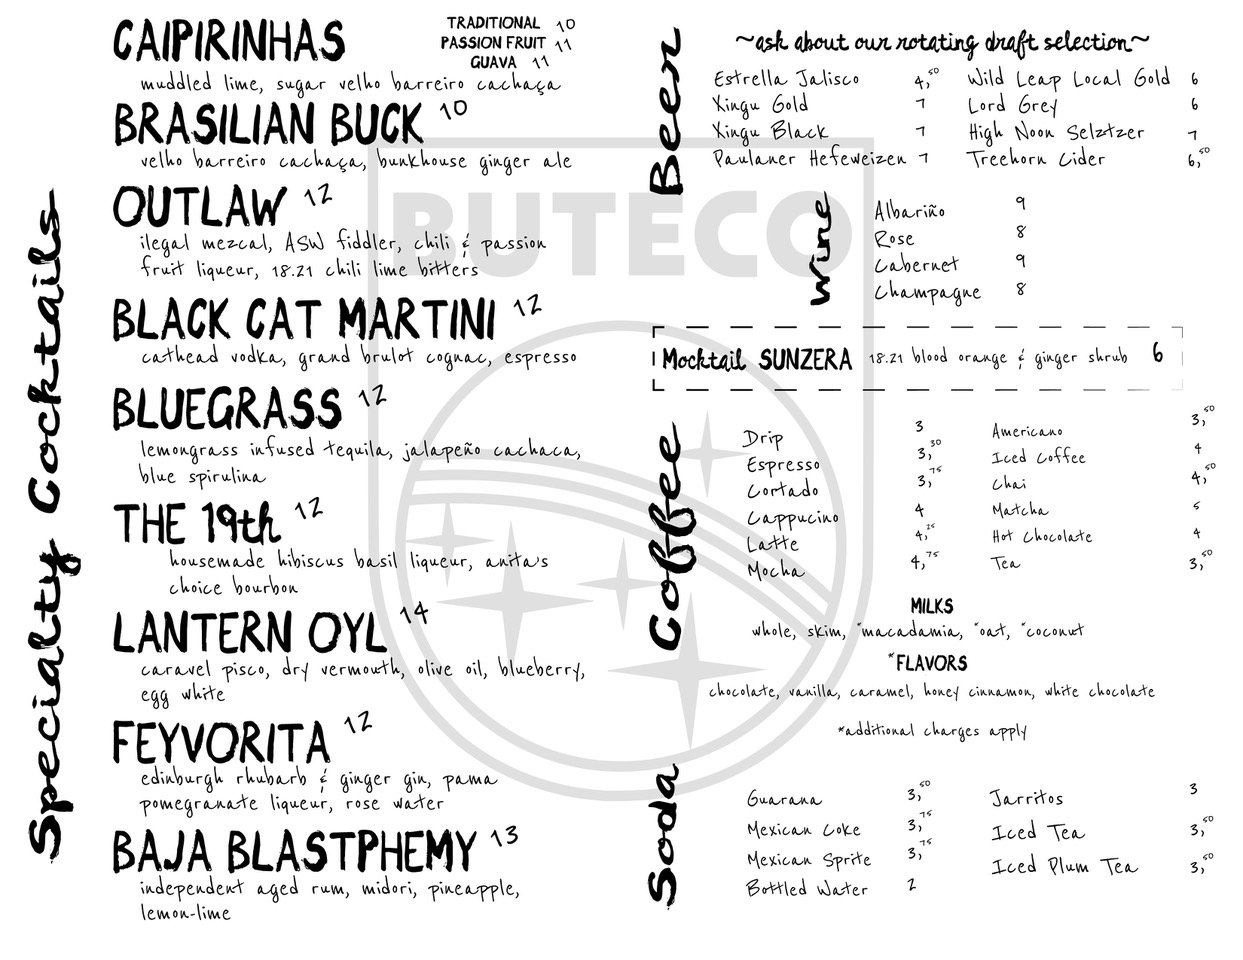 Specialty Cocktails
CAIPIRINHAS
TRADITIONAL 10
PASSION FRUIT 11
GUAVA 11
muddled lime, sugar velho barreiro cachaça
BRASILIAN BUCK 10
velho barreiro cachaça, bunkhouse ginger ale
OUTLAW 12
ilegal mezcal, ASW fiddler, chili & passion
fruit liqueur, 18.21 chili lime bitters
BLACK CAT MARTINI 12
cathead vodka, grand brulot cognac, espresso
BLUEGRASS 12
lemongrass infused tequila, jalapeño cachaca,
blue spirulina
THE 19th 12
housemade hibiscus basil liqueur, anita's
choice bourbon
LANTERN OYL 14
caravel pisco, dry vermouth, olive oil, blueberry,
egg white
FEYVORITA 12
edinburgh rhubarb & ginger gin, pama
pomegranate liqueur, rose water
BAJA BLASTPHEMY 13
independent aged rum, midori, pineapple,
lemon-lime
BUTECO
Beer
~ask about our rotating draft selection~
Estrella Jalisco 4,50 Wild Leap Local Gold 6
Xingu Gold 7 Lord Grey 6
Xingu Black 7 High Noon Selztzer 7
Paulaner Hefeweizen 7 Treehorn Cider 6,50
Wine
Albariño 9
Rose 8
Cabernet 9
Champagne 8
Mocktail SUNZERA 18.21 blood orange & ginger shrub 6
Coffee
Drip 3 Americano 3,50
Espresso 3,30 Iced Coffee 4
Cortado 3,75 Chai 4,50
Cappucino 4 Matcha 5
Latte 4,25 Hot Chocolate 4
Mocha 4,75 Tea 3,50
MILKS
whole, skim, *macadamia, *oat, *coconut
*FLAVORS
chocolate, vanilla, caramel, honey cinnamon, white chocolate
*additional charges apply
Soda
Guarana 3,50 Jarritos 3
Mexican Coke 3,75 Iced Tea 3,50
Mexican Sprite 3,75 Iced Plum Tea 3,50
Bottled Water 2